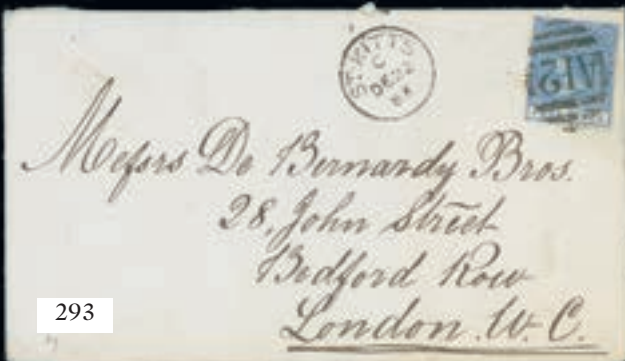 ST. KITTS
C
DE 22
84
A12
Messrs De Bernardy Bros.
28, John Street
Bedford Row
London. W. C.
293